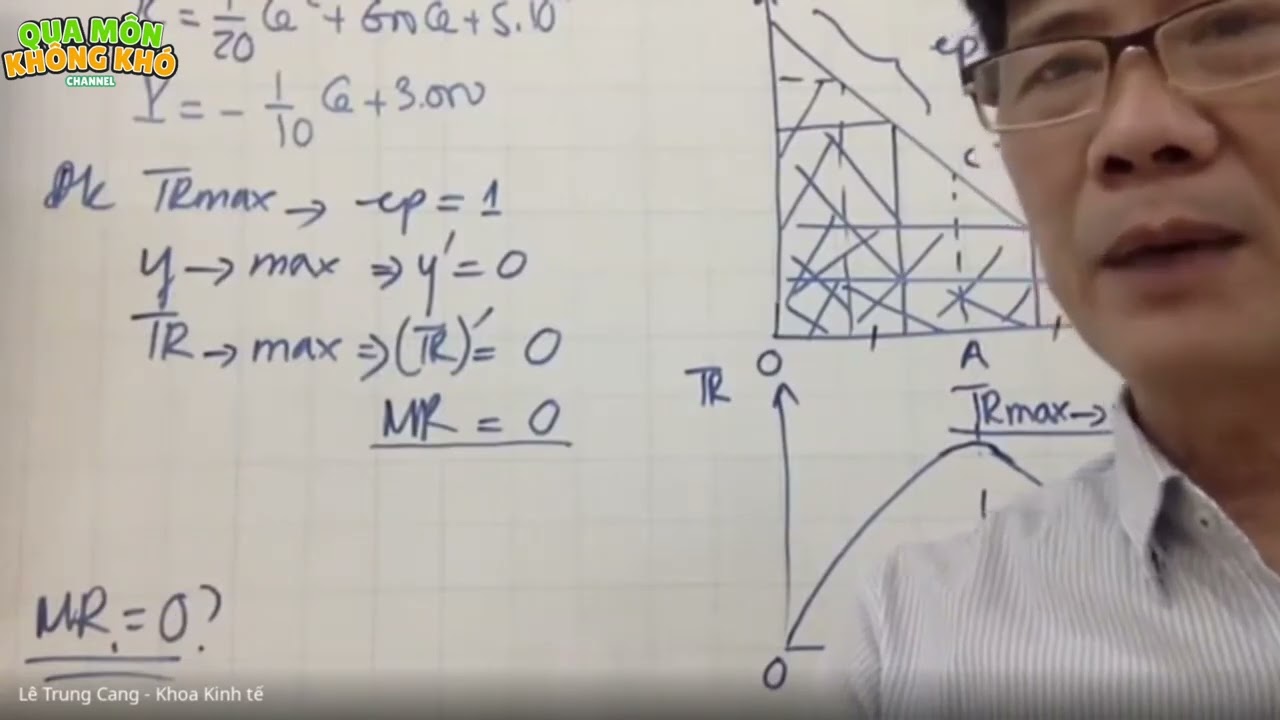 QUA MÔN
KHÔNG KHÓ
CHANNEL
= 1/20 Q + 600Q + 5.10
P = - 1/10 Q + 3.000
Đk TRmax → ep = 1
y → max ⇒ y' = 0
TR → max ⇒ (TR)' = 0
MR = 0
MR = 0?
ep
C
O
A
TR
TRmax→
O
Lê Trung Cang - Khoa Kinh tế